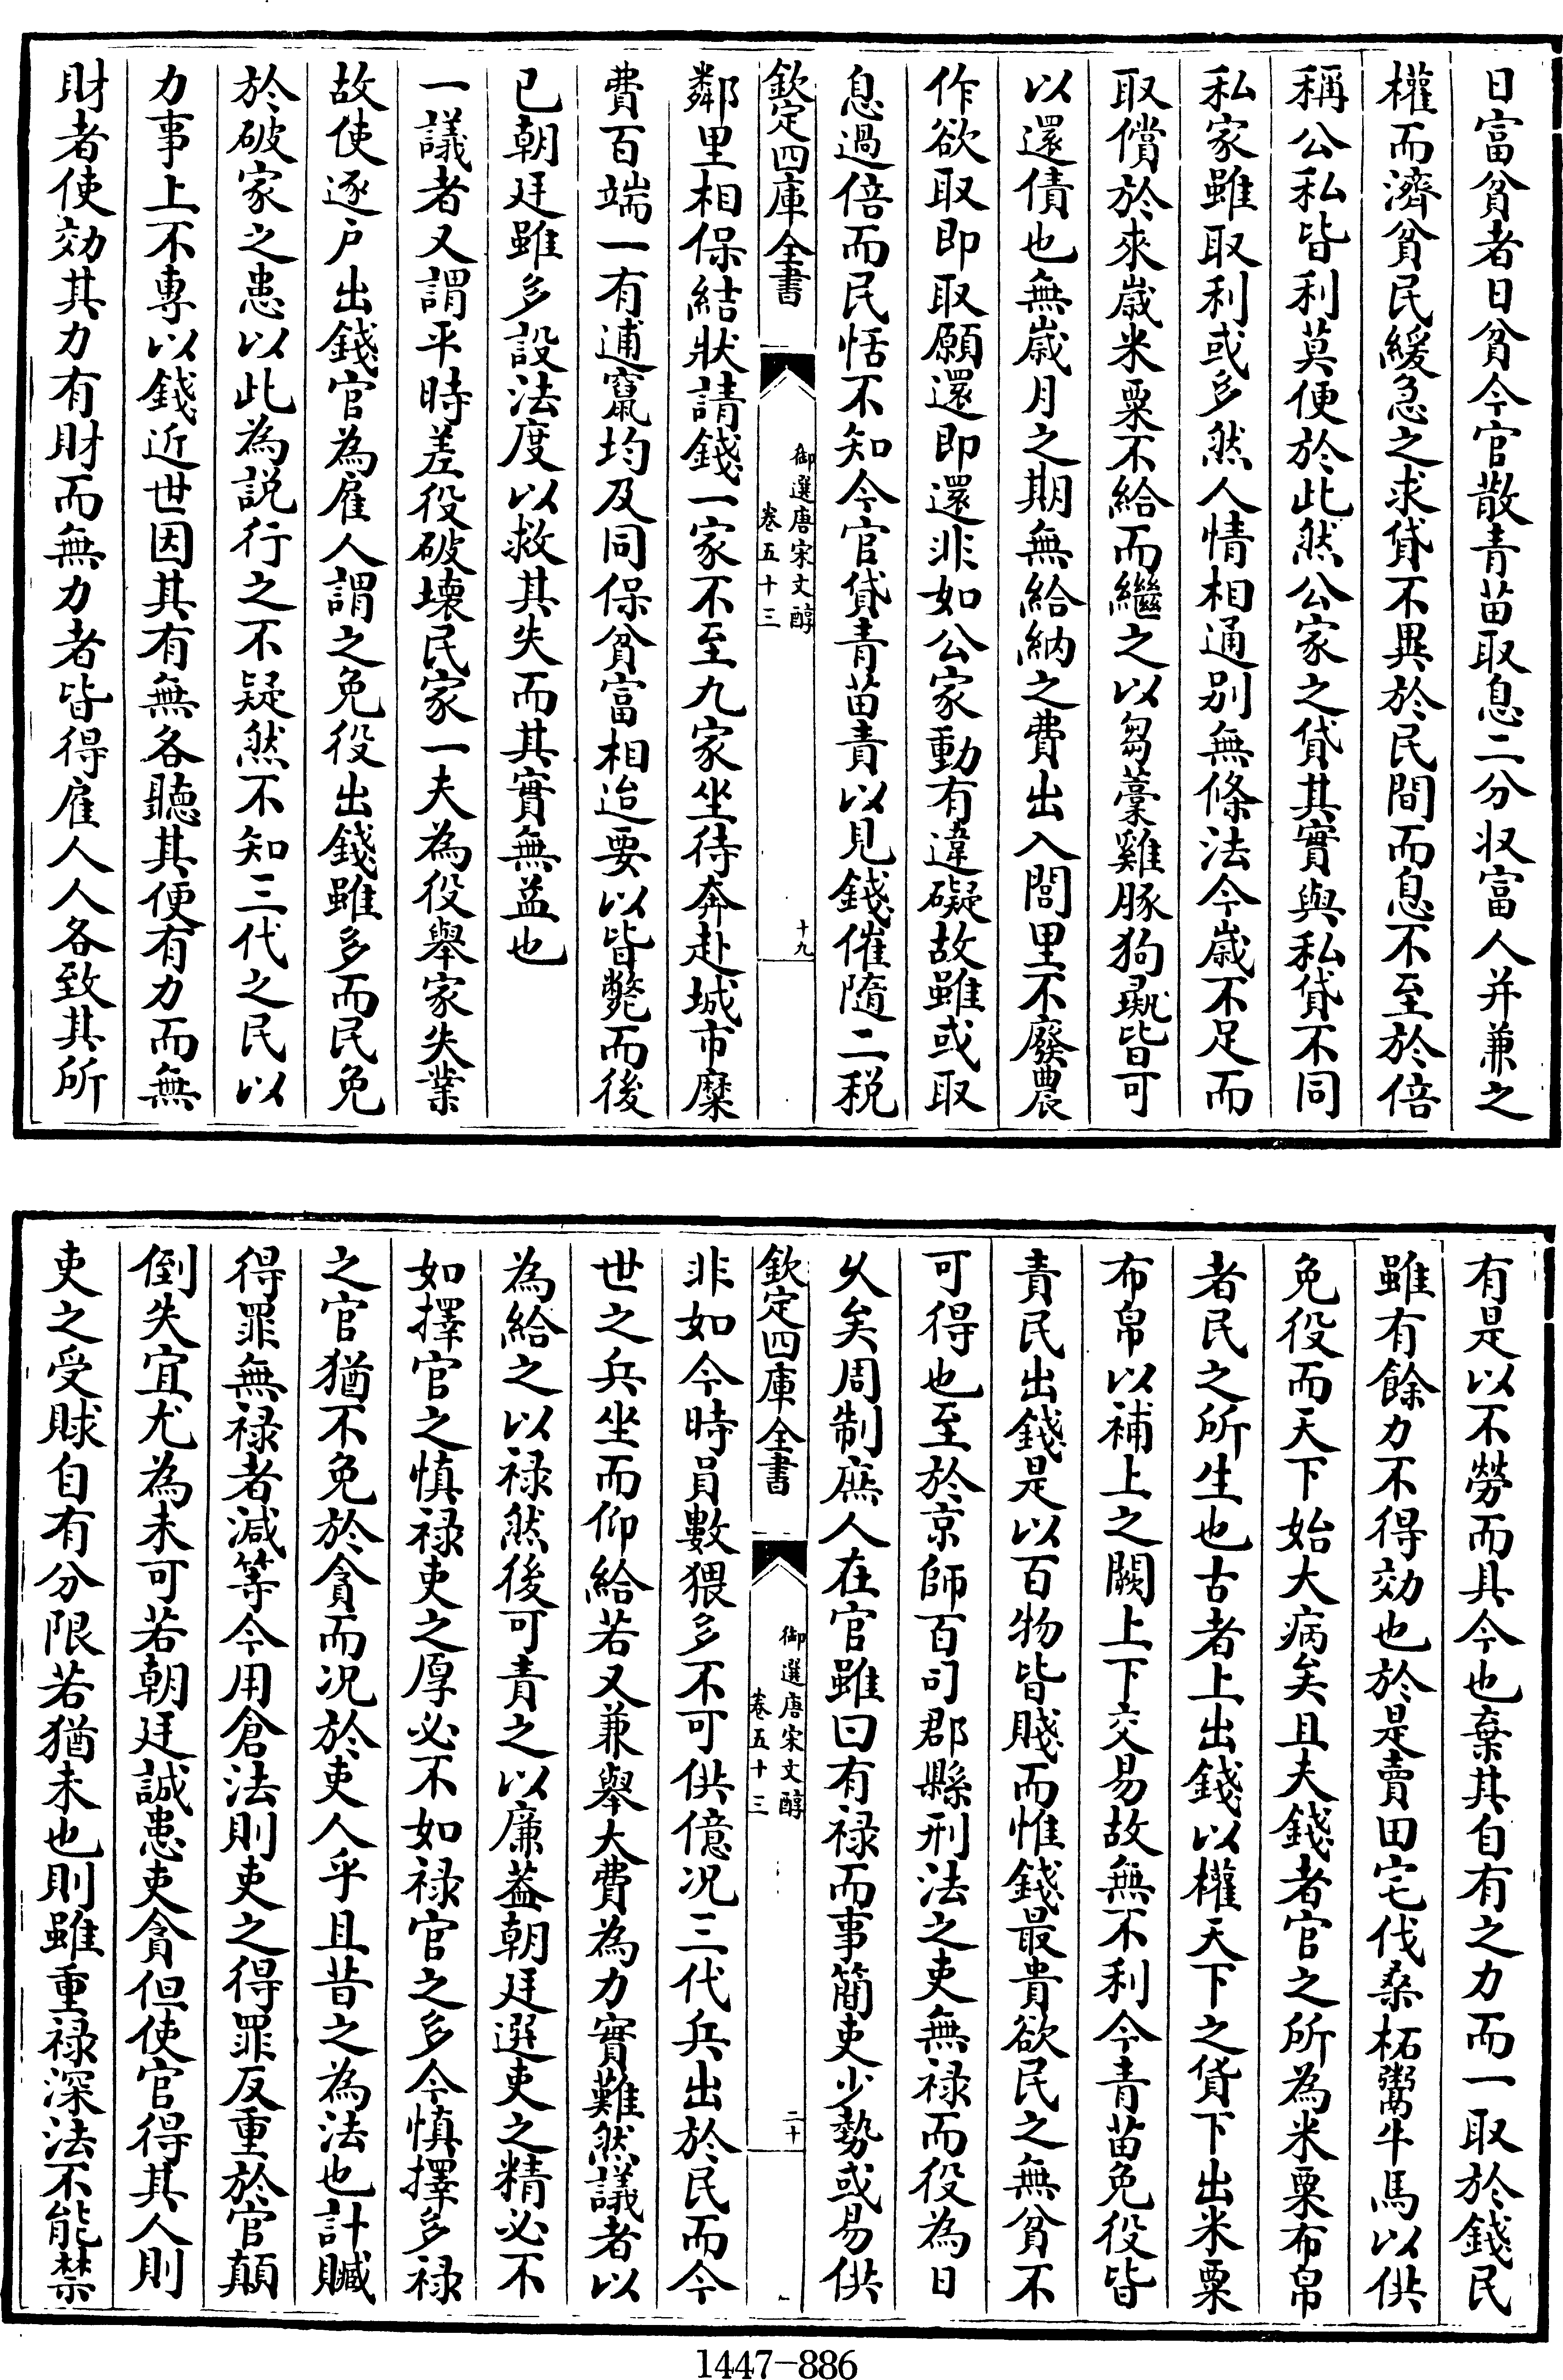 日富貧者日貧今官散青苗取息二分收富人并兼之
權而濟貧民緩急之求貸不異於民間而息不至於倍
稱公私皆利莫便於此然公家之貸其實與私貸不同
私家雖取利或多然人情相通别無條法今歳不足而
取償於來歳米粟不給而繼之以芻藁雞豚狗彘皆可
以還債也無歳月之期無給納之費出入閭里不廢農
作欲取即取願還即還非如公家動有違礙故雖或取
息過倍而民恬不知今官貸青苗責以見錢催隨二税
欽定四庫全書
御選唐宋文醇
卷五十三
十九
鄰里相保結狀請錢一家不至九家坐待奔赴城市糜
費百端一有逋竄均及同保貧富相迨要以皆斃而後
已朝廷雖多設法度以救其失而其實無益也
一議者又謂平時差役破壊民家一夫為役舉家失業
故使逐户出錢官為雇人謂之免役出錢雖多而民免
於破家之患以此為説行之不疑然不知三代之民以
力事上不專以錢近世因其有無各聽其便有力而無
財者使効其力有財而無力者皆得雇人人各致其所
有是以不勞而具今也棄其自有之力而一取於錢民
雖有餘力不得効也於是賣田宅伐桑柘鬻牛馬以供
免役而天下始大病矣且夫錢者官之所為米粟布帛
者民之所生也古者上出錢以權天下之貨下出米粟
布帛以補上之闕上下交易故無不利今青苗免役皆
責民出錢是以百物皆賤而惟錢最貴欲民之無貧不
可得也至於京師百司郡縣刑法之吏無禄而役為日
乆矣周制庶人在官雖曰有禄而事簡吏少勢或易供
欽定四庫全書
御選唐宋文醇
卷五十三
二十
非如今時員數猥多不可供億况三代兵出於民而今
世之兵坐而仰給若又兼舉大費為力實難然議者以
為給之以禄然後可責之以廉葢朝廷選吏之精必不
如擇官之慎禄吏之厚必不如禄官之多今慎擇多禄
之官猶不免於貪而况於吏人乎且昔之為法也計贓
得罪無禄者減等今用倉法則吏之得罪反重於官顛
倒失宜尤為未可若朝廷誠患吏貪但使官得其人則
吏之受賕自有分限若猶未也則雖重禄深法不能禁
1447-886